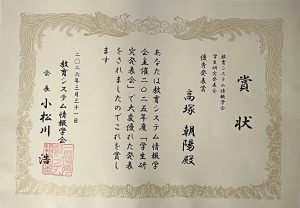 賞状
教育システム情報学会
学生研究発表会
優秀発表賞
高塚 朝陽殿
あなたは教育システム情報学
会主催二〇二五年度「学生研
究発表会」で大変優れた発表
をされましたのでこれを賞し
ます
二〇二六年三月三十一日
教育システム情報学会
会長 小松川 浩